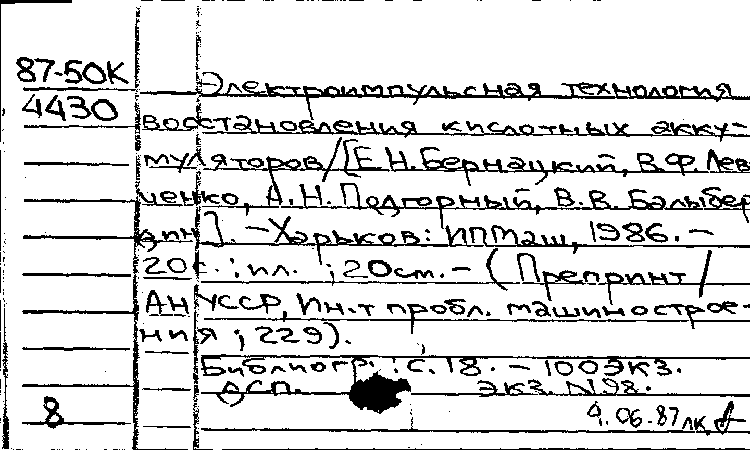 87-50К
4430
Электроимпульсная технология
восстановления кислотных акку-
муляторов/[Е.Н.Бернацкий, В.Ф.Лев
ченко, А.Н. Подгорный, В.В. Балыбер
дин]. – Харьков: ИПМаш, 1986. –
20с.: ил. ; 20см. – (Препринт/
АН УССР, Ин-т пробл. машинострое-
ния ; 229).
Библиогр.: с. 18. – 100экз.
ДСП. экз. N98.
8
4.06.87 лк.